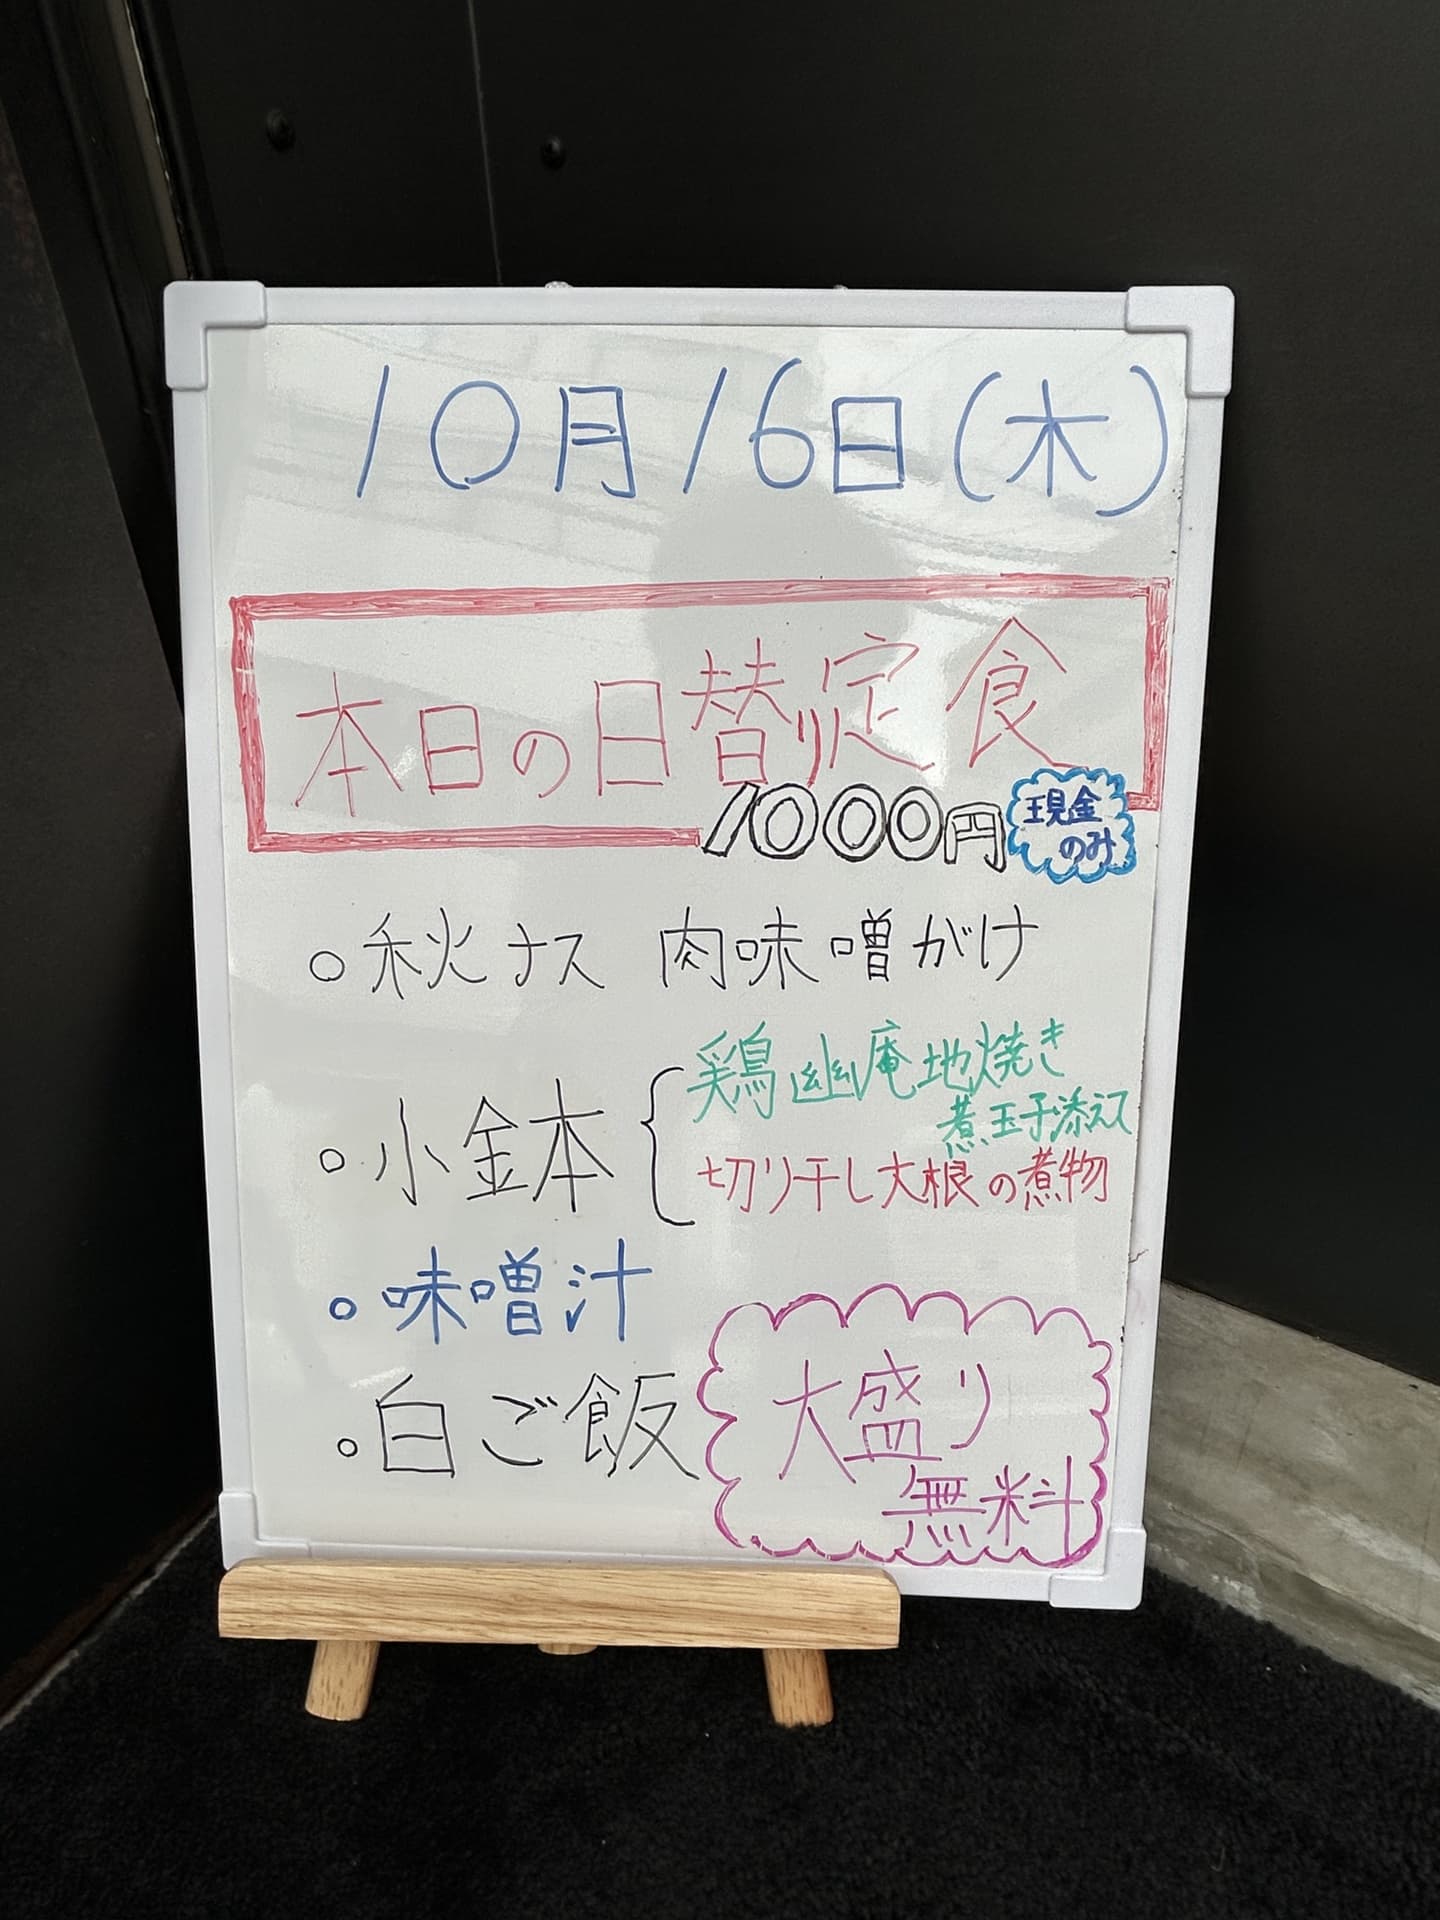 10月16日(木)
本日の日替り定食
1000円
現金
のみ
○秋ナス 肉味噌がけ
○小金本
鶏幽庵地焼き
煮玉子添えて
切り干し大根の煮物
○味噌汁
○白ご飯
大盛り
無料